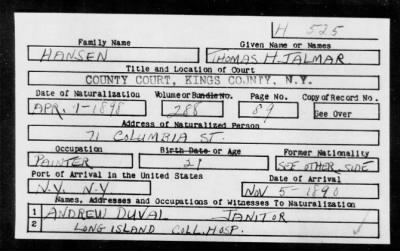 H 525
Family Name Given Name or Names
HANSEN THOMAS HJALMAR
Title and Location of Court
COUNTY COURT, KINGS COUNTY, N.Y.
Date of Naturalization Volume or Bundle No. Page No. Copy of Record No.
APR. 1-1898 288 89 See Over
Address of Naturalized Person
71 COLUMBIA ST.
Occupation Birth Date or Age Former Nationality
PAINTER 21 SEE OTHER SIDE
Port of Arrival in the United States Date of Arrival
N.Y. N.Y NOV 5-1890
Names, Addresses and Occupations of Witnesses To Naturalization
1 ANDREW DUVAL JANITOR
2 LONG ISLAND COLL. HOSP.